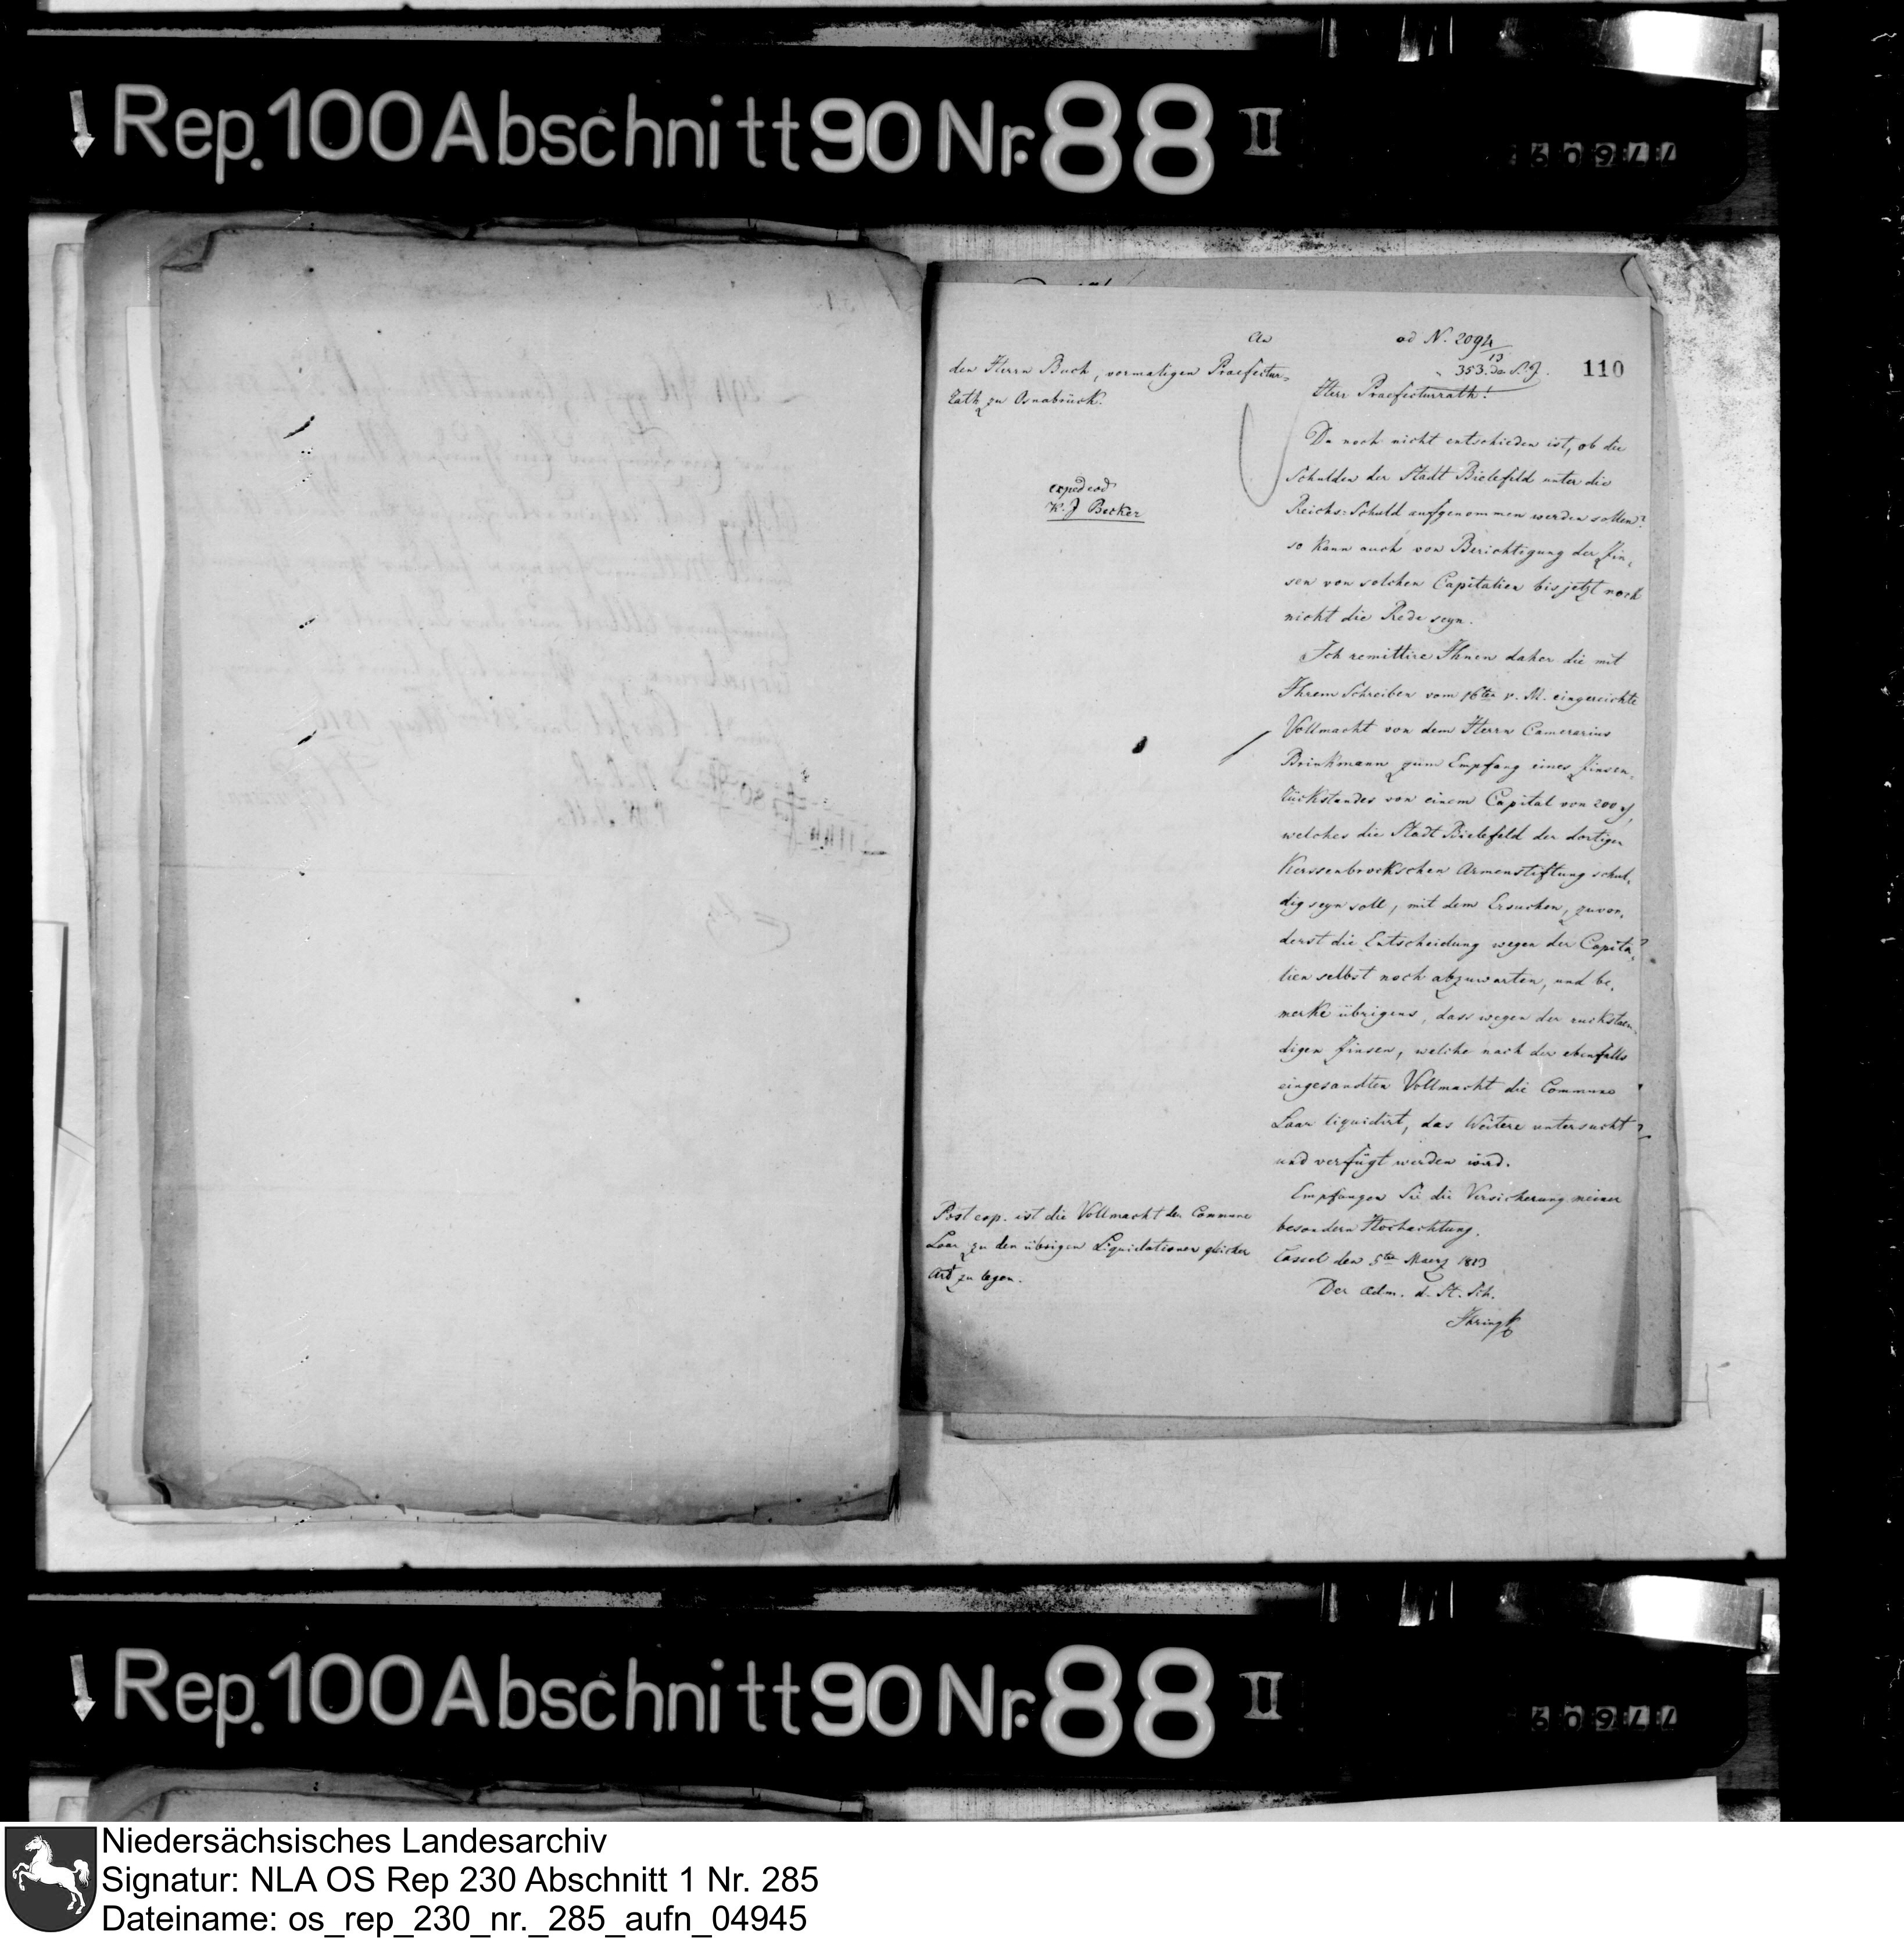 Rep. 100 Abschnitt 90 Nr. 88 II
An
den Herrn Buch, vormaligen Praefectur-
Rath zu Osnabrück.
exped eod
K. J Becker
ad N. 2094
13
353. de S. J.
110
Herr Praefecturrath!
Da noch nicht entschieden ist, ob die
Schulden der Stadt Bielefeld unter die
Reichs-Schuld aufgenommen werden sollen?
so kann auch von Berichtigung der Zin-
sen von solchen Capitalien bis jetzt noch
nicht die Rede seyn.
Ich remittire Ihnen daher die mit
Ihrem Schreiben vom 16ten v. M. eingereichte
Vollmacht von dem Herrn Camerarius
Brinkmann zum Empfang eines Zinsen-
Rückstandes von einem Capital von 200
welches die Stadt Bielefeld der dortigen
Kerssenbrockschen Armenstiftung schul-
dig seyn soll, mit dem Ersuchen, zuvor-
derst die Entscheidung wegen der Capita-
lien selbst noch abzuwarten, und be-
merke übrigens, dass wegen der rückstaen-
digen Zinsen, welche nach der ebenfalls
eingesandten Vollmacht die Commune
Laar liquidirt, das Weitere untersucht
und verfügt werden wird.
Empfangen Sie die Versicherung meiner
besondern Hochachtung.
Cassel den 5ten Maerz 1813
Der Adm. d. St. Sch.
Post exp. ist die Vollmacht der Commune
Laar zu den übrigen Liquidationen gleicher
Art zu legen.
Rep. 100 Abschnitt 90 Nr. 88 II
Niedersächsisches Landesarchiv
Signatur: NLA OS Rep 230 Abschnitt 1 Nr. 285
Dateiname: os_rep_230_nr._285_aufn_04945